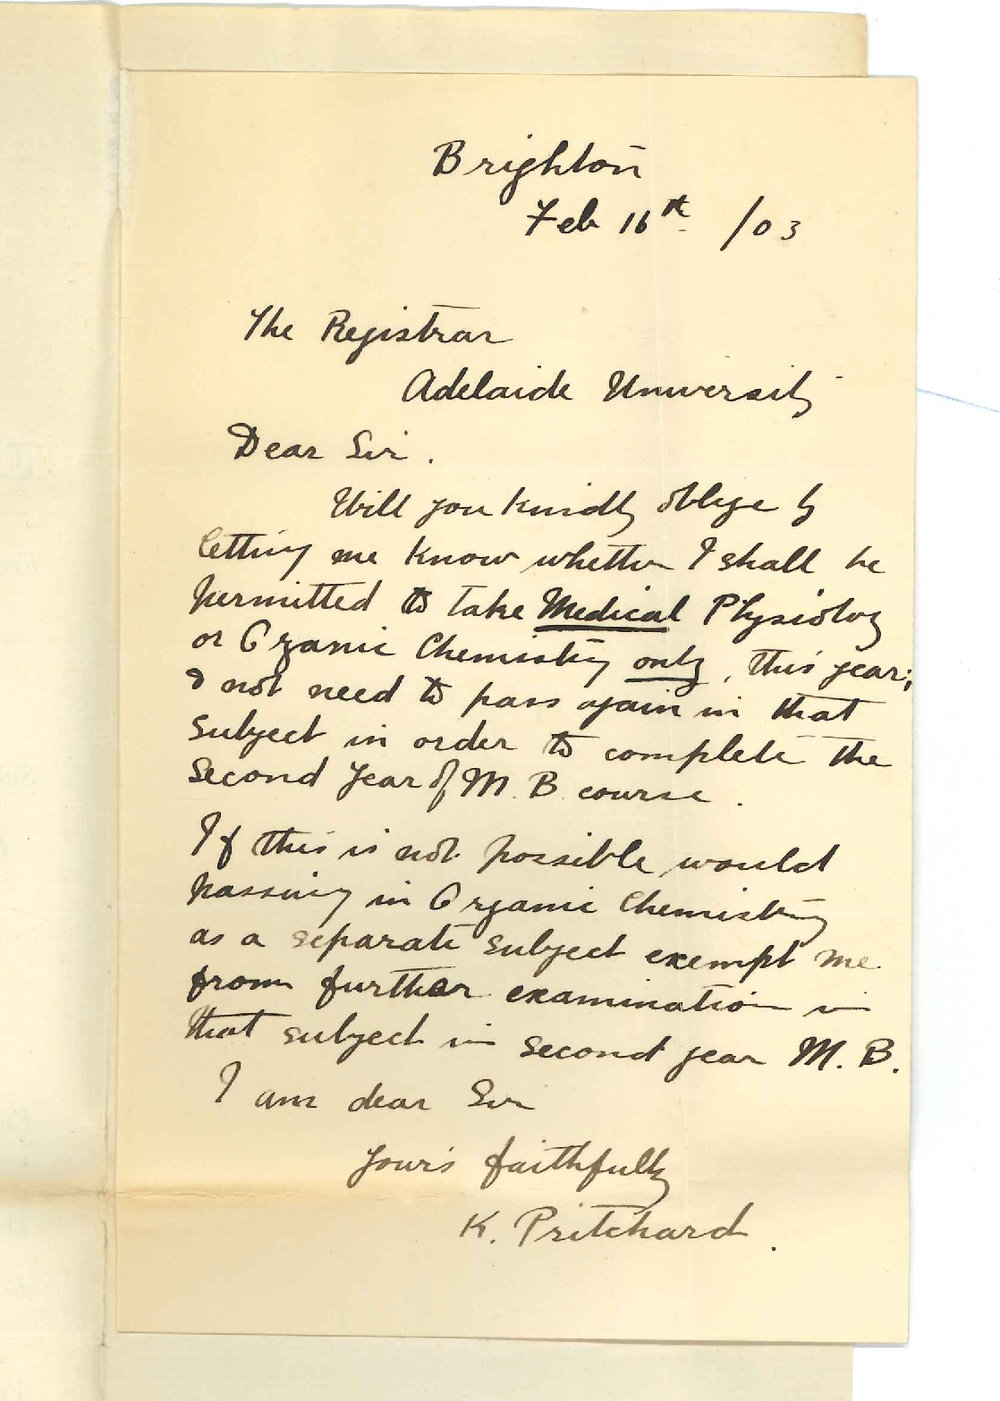 Brighton
Feb 16th /03
The Registrar
Adelaide University
Dear Sir.
Will you kindly oblige by
letting me know whether I shall be
permitted to take Medical Physiology
or Organic Chemistry only, this year;
& not need to pass again in that
subject in order to complete the
Second Year of M.B. course.
If this is not possible would
passing in Organic Chemistry
as a separate subject exempt me
from further examination in
that subject in second year M.B.
I am dear Sir
Yours faithfully
K. Pritchard.